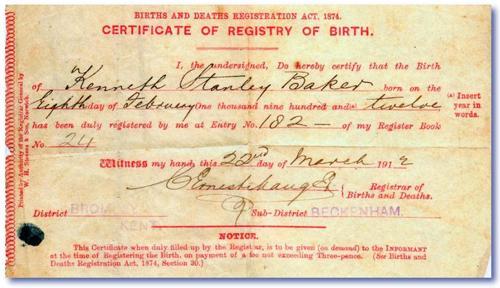 BIRTHS AND DEATHS REGISTRATION ACT, 1874.
CERTIFICATE OF REGISTRY OF BIRTH.
I, the undersigned, Do hereby certify that the Birth
of Kenneth Stanley Baker born on the
Eighth day of February One thousand nine hundred and twelve
(a) Insert year in words.
has been duly registered by me at Entry No. 182 of my Register Book
No. 24
Witness my hand this 22nd day of March 1912
Registrar of
Births and Deaths.
District BROM
KENT
Sub-District BECKENHAM.
NOTICE.
This Certificate when duly filled up by the Registrar, is to be given (on demand) to the INFORMANT
at the time of Registering the Birth, on payment of a fee not exceeding Three-pence. (See Births and
Deaths Registration Act, 1874, Section 30.)
Printed by Authority of the Registrar General by